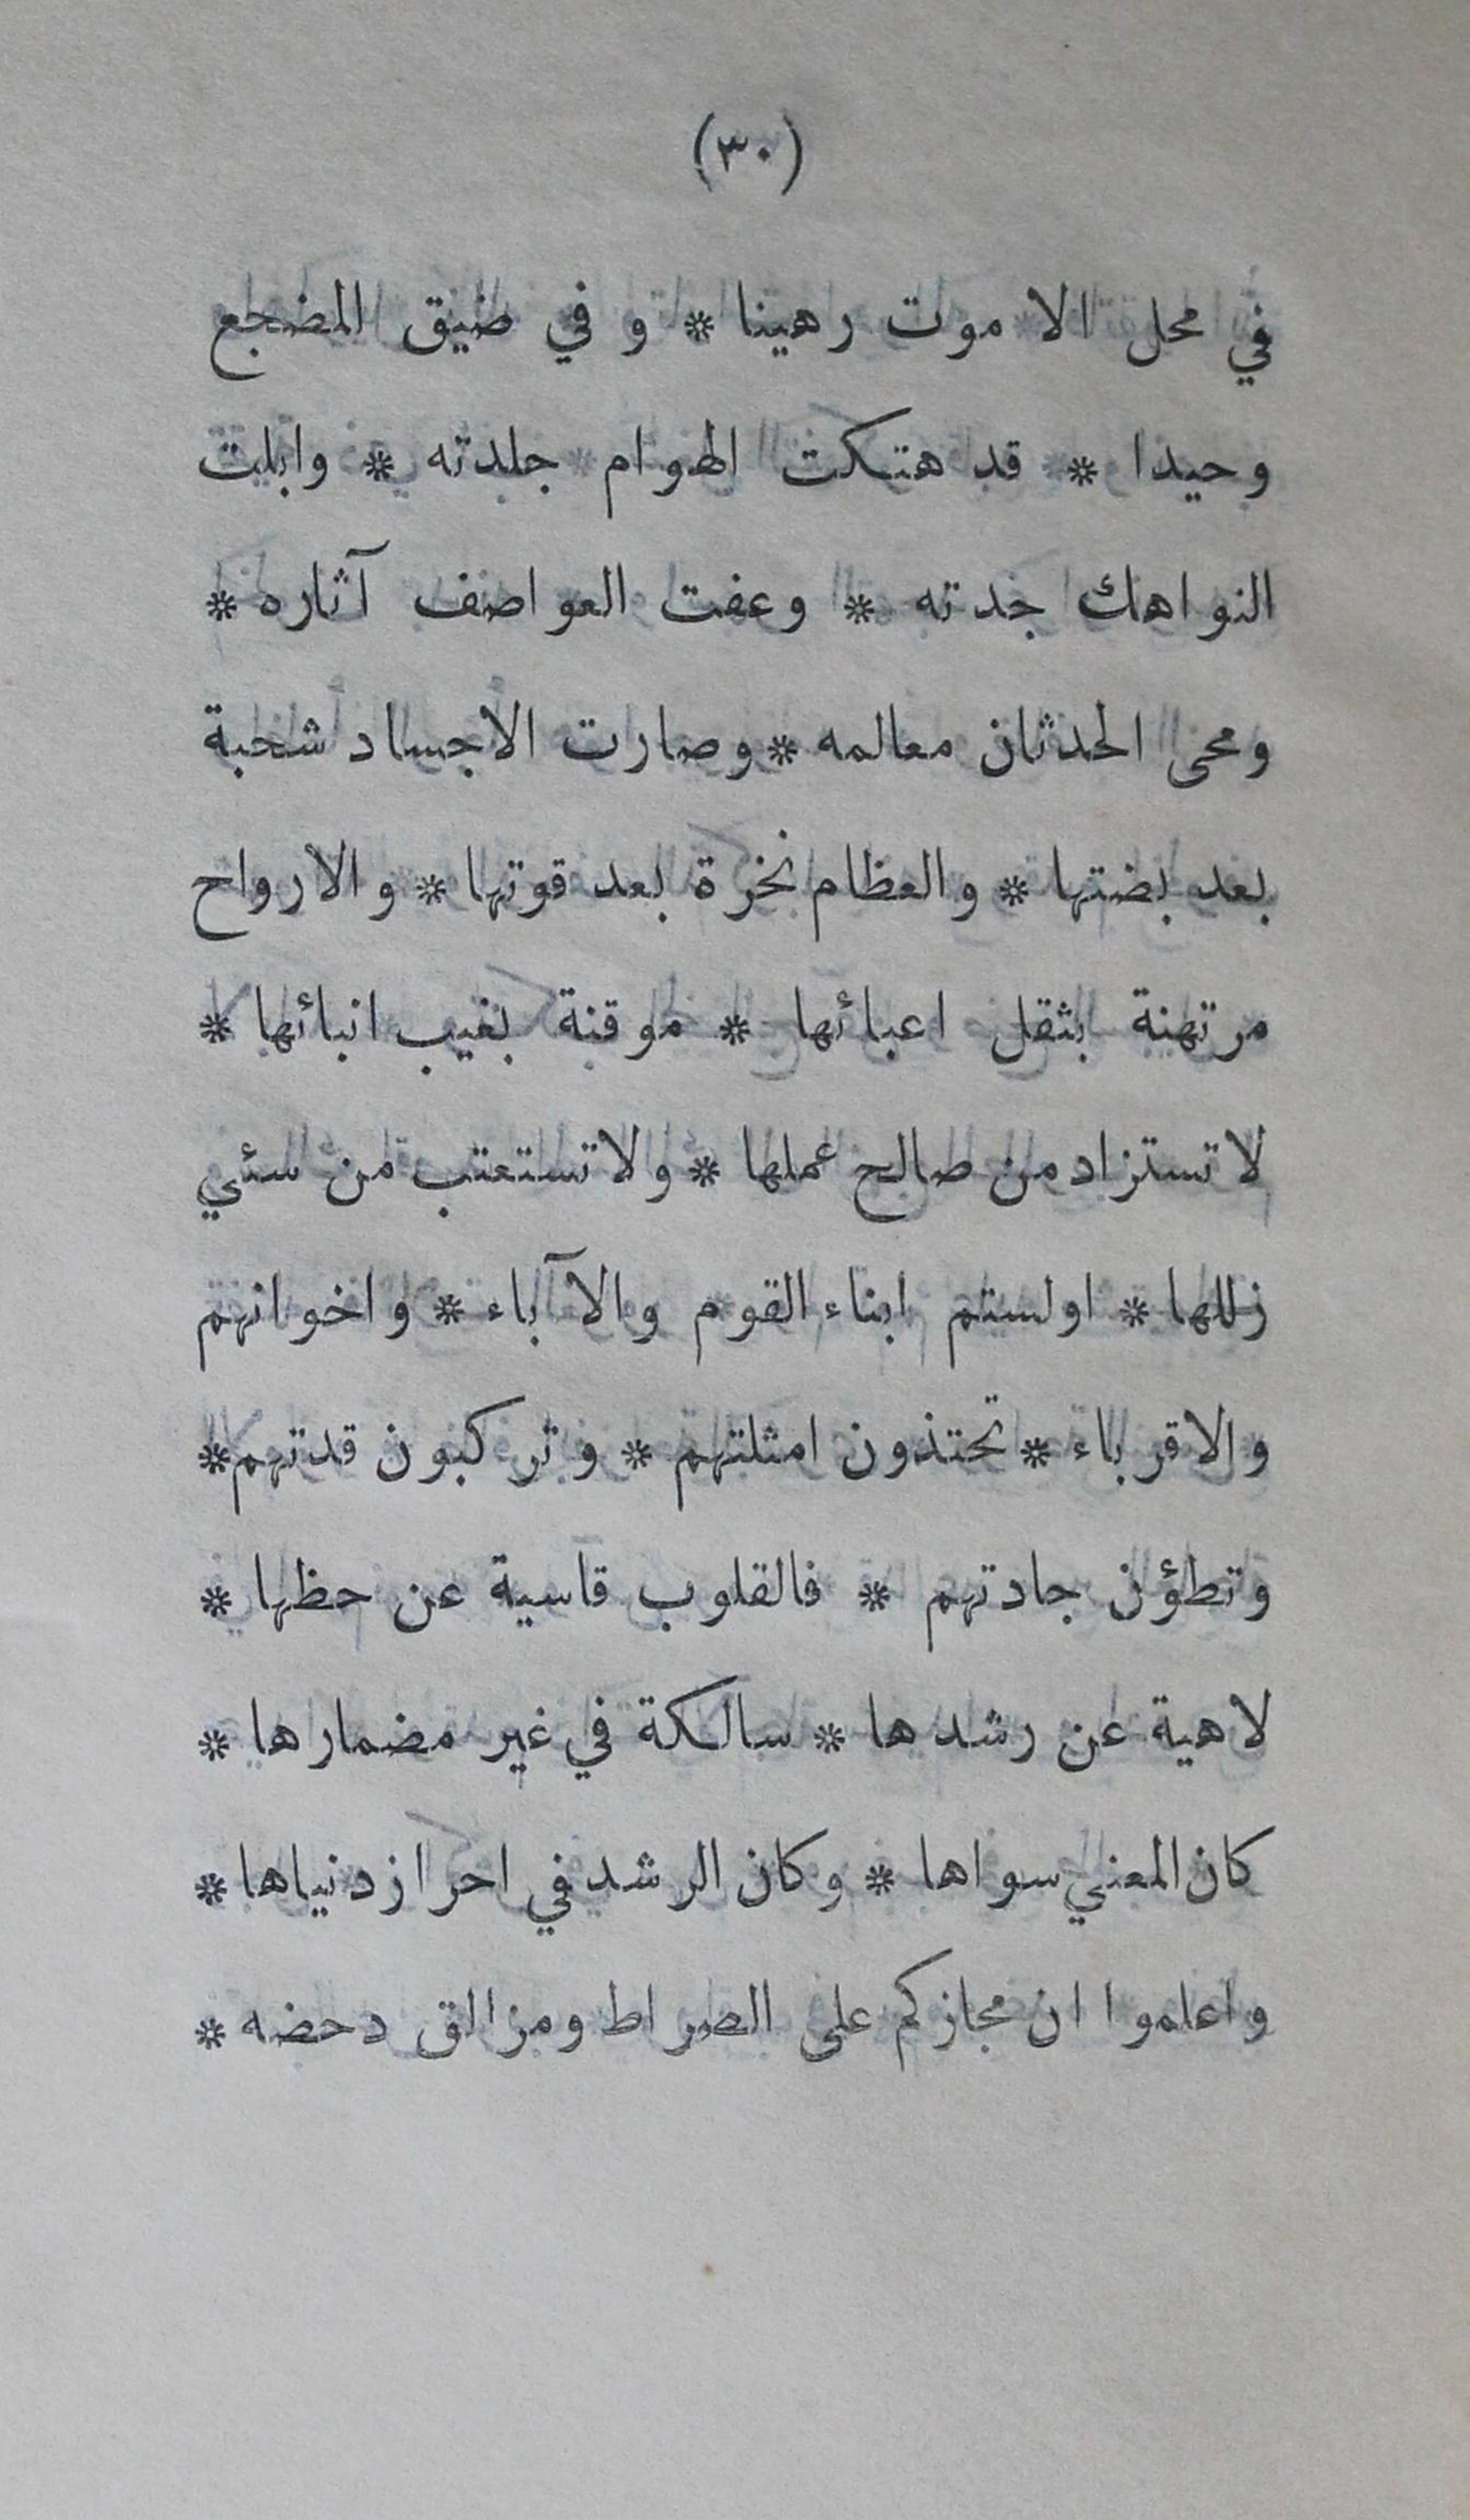 (٣٠)
في محل الاموت رهينا * و في ضيق المضجع
وحيدا * قد هتكت الهوام جلدته * وابلت
النواهك جدته * وعفت العواصف آثاره *
ومحى الحدثان معالمه * وصارت الاجساد شحبة
بعد بضتها * والعظام نخرة بعد قوتها * والارواح
مرتهنة بثقل اعبائها * موقنة بغيب انبائها *
لا تستزاد من صالح عملها * ولا تستعتب من سئي
زللها * اولستم ابناء القوم والآباء * واخوانهم
والاقرباء * تحتذون امثلتهم * وتركبون قدتهم *
وتطؤن جادتهم * فالقلوب قاسية عن حظها *
لاهية عن رشدها * سالكة في غير مضمارها *
كان المعني سواها * وكان الرشد في احراز دنياها *
واعلموا ان مجازكم على الصراط ومزالق دحضه *